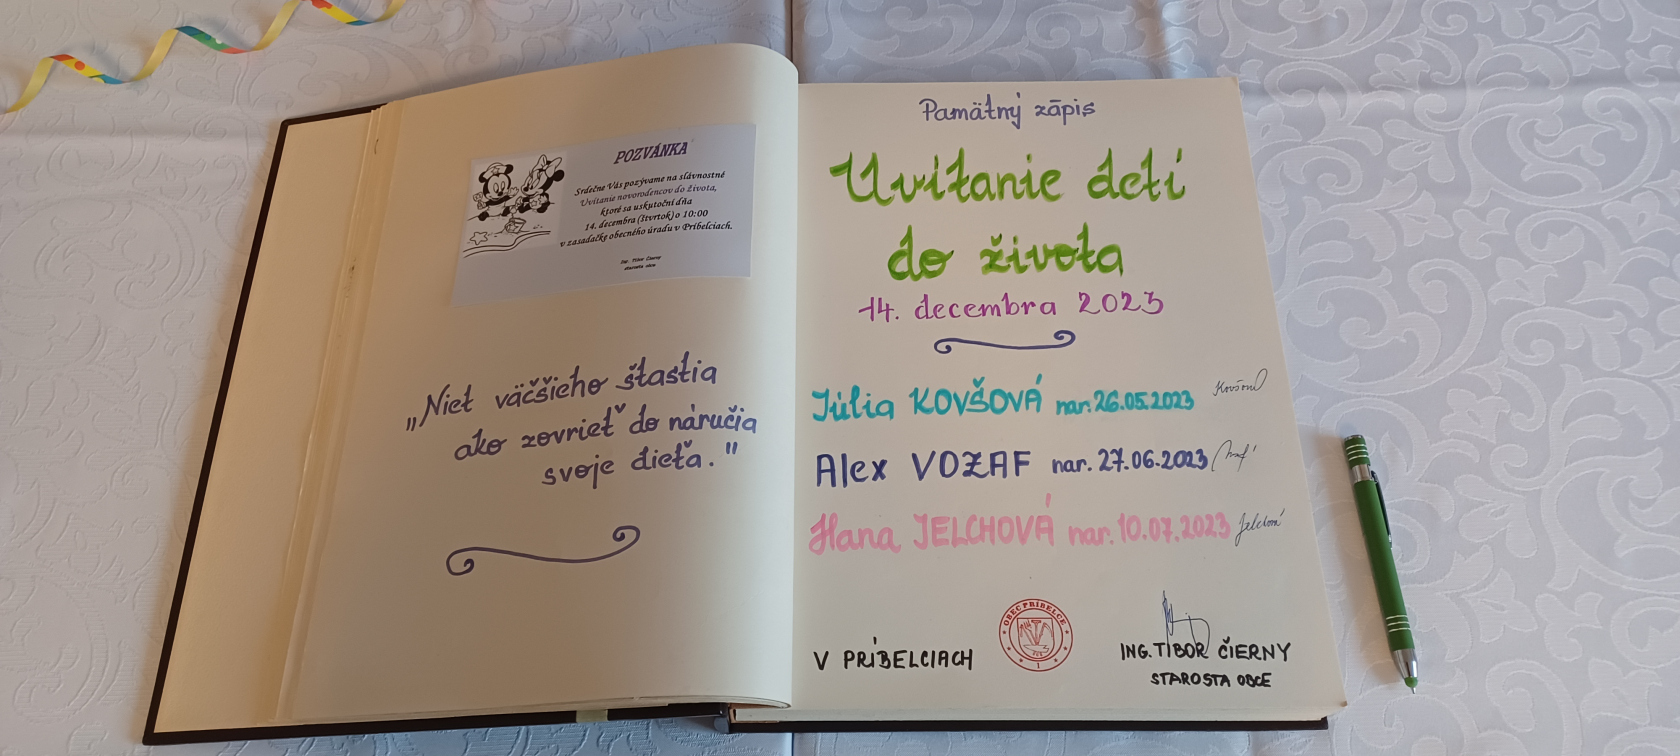 POZVÁNKA
Srdečne Vás pozývame na slávnostné
Uvítanie novorodencov do života,
ktoré sa uskutoční dňa
14. decembra (štvrtok) o 10:00
v zasadačke obecného úradu v Príbelciach.
Ing. Tibor Čierny
starosta obce
„Niet väčšieho šťastia
ako zovrieť do náručia
svoje dieťa."
Pamätný zápis
Uvítanie detí
do života
14. decembra 2023
Júlia KOVŠOVÁ nar. 26.05.2023
Alex VOZAF nar. 27.06.2023
Hana JELCHOVÁ nar. 10.07.2023 Jelchová
OBEC PRÍBELCE
1
V PRÍBELCIACH
ING. TIBOR ČIERNY
STAROSTA OBCE